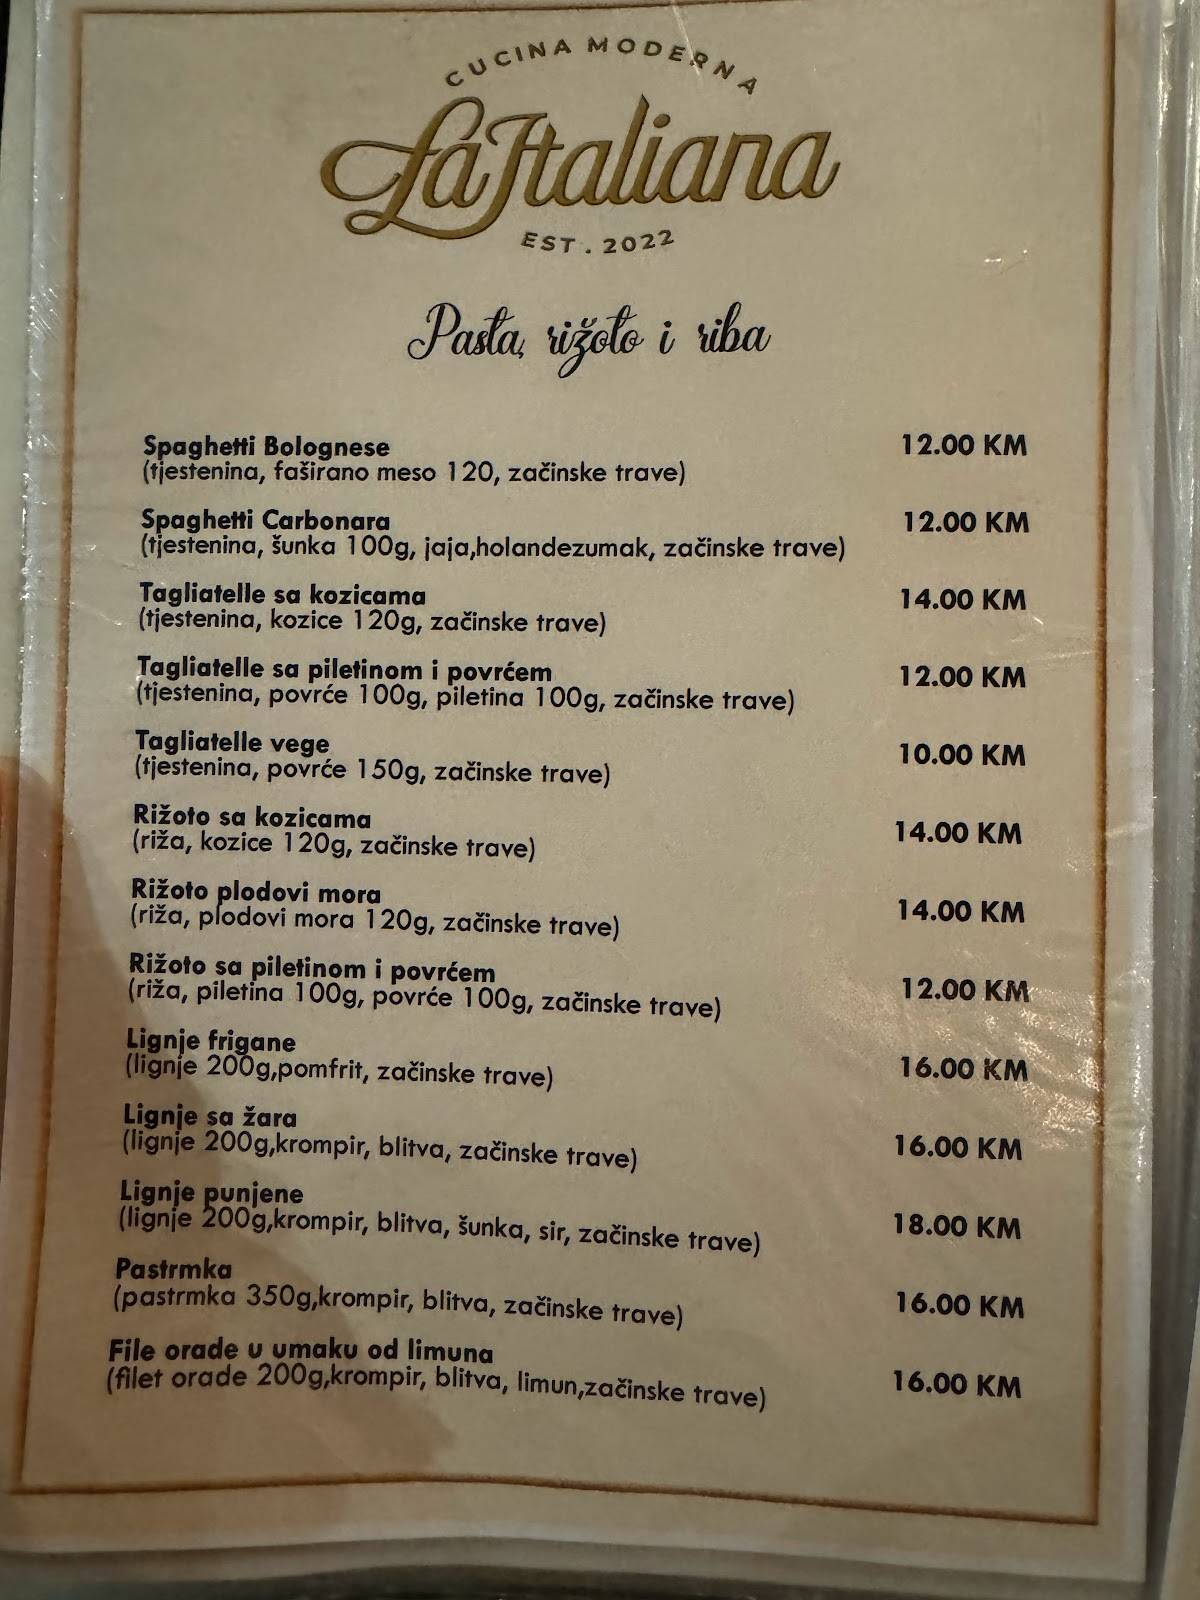 CUCINA MODERNA
La Italiana
EST. 2022
Pasta, rižoto i riba
Spaghetti Bolognese 12.00 KM
(tjestenina, faširano meso 120, začinske trave)
Spaghetti Carbonara 12.00 KM
(tjestenina, šunka 100g, jaja,holandezumak, začinske trave)
Tagliatelle sa kozicama 14.00 KM
(tjestenina, kozice 120g, začinske trave)
Tagliatelle sa piletinom i povrćem 12.00 KM
(tjestenina, povrće 100g, piletina 100g, začinske trave)
Tagliatelle vege 10.00 KM
(tjestenina, povrće 150g, začinske trave)
Rižoto sa kozicama 14.00 KM
(riža, kozice 120g, začinske trave)
Rižoto plodovi mora 14.00 KM
(riža, plodovi mora 120g, začinske trave)
Rižoto sa piletinom i povrćem 12.00 KM
(riža, piletina 100g, povrće 100g, začinske trave)
Lignje frigane 16.00 KM
(lignje 200g,pomfrit, začinske trave)
Lignje sa žara 16.00 KM
(lignje 200g,krompir, blitva, začinske trave)
Lignje punjene 18.00 KM
(lignje 200g,krompir, blitva, šunka, sir, začinske trave)
Pastrmka 16.00 KM
(pastrmka 350g,krompir, blitva, začinske trave)
File orade u umaku od limuna 16.00 KM
(filet orade 200g,krompir, blitva, limun,začinske trave)